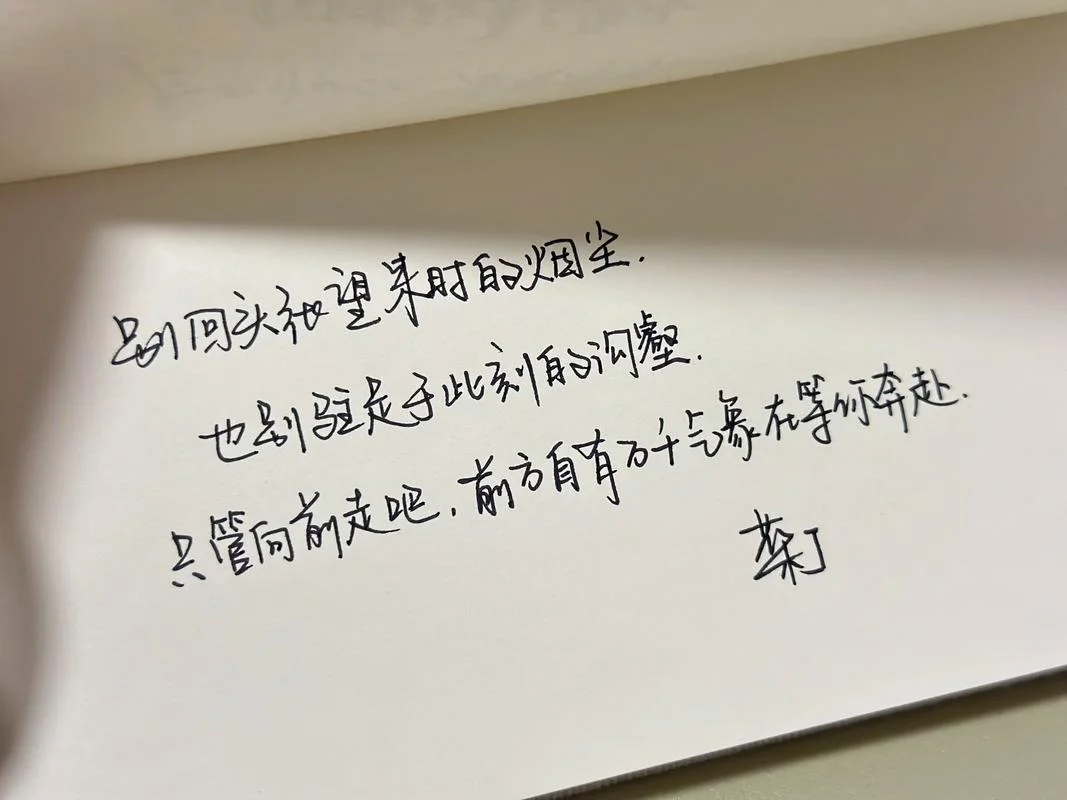 别回头祝望来时的烟尘.
也别驻足于此刻的沟壑.
只管向前走吧,前方自有万千气象在等你奔赴.